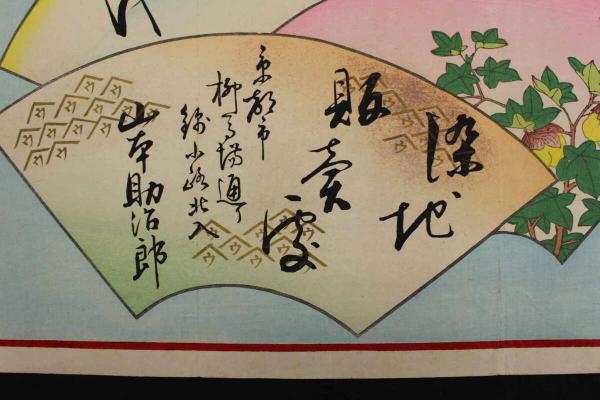 染地
販賣處
京都市
柳馬場通リ
錦小路北入
山本助治郎